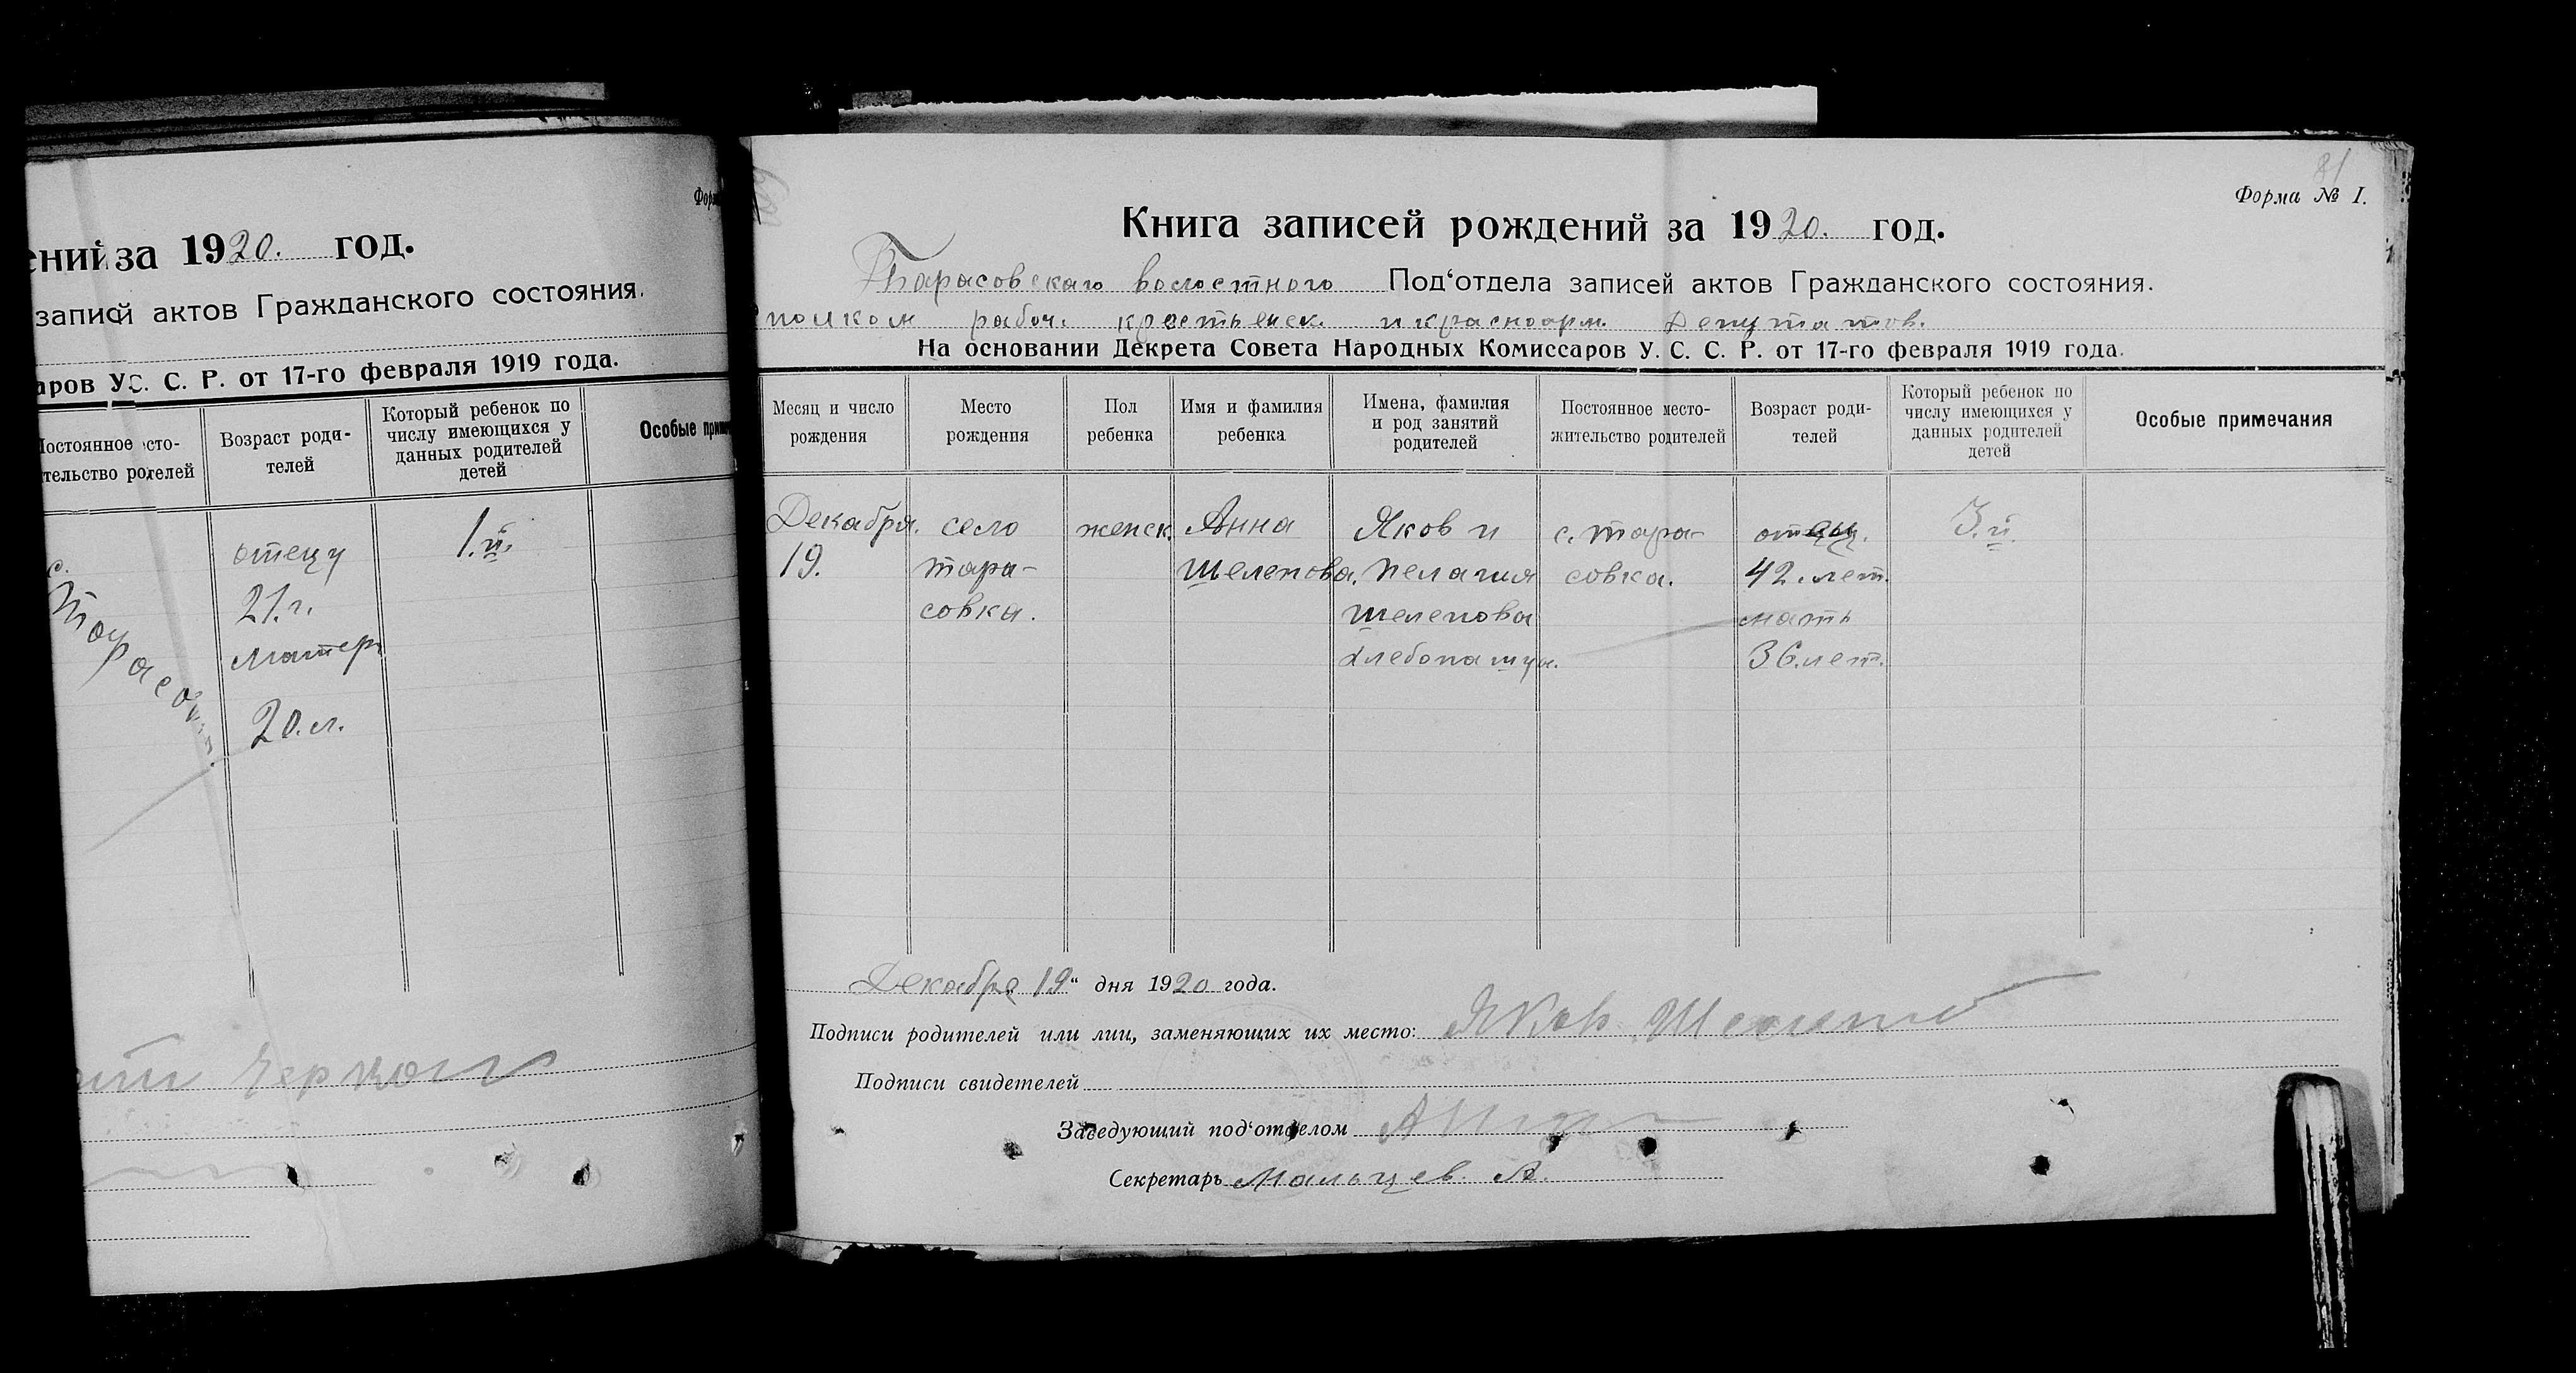 за 1920. год.
актов Гражданского состояния.
С. С. Р. от 17-го февраля 1919 года.
Возраст роди-
телей
Который ребенок по
числу имеющихся у
данных родителей
детей
Особые
с.
отецу
21.г.
матери
20.л.
1.й.
81
Форма № I.
Книга записей рождений за 1920. год.
Тарасовскаго волостного Под‘отдела записей актов Гражданского состояния.
рабоч. крестьянск. и красноарм. Депутатов.
На основании Декрета Совета Народных Комиссаров У. С. С. Р. от 17-го февраля 1919 года.
Месяц и число
рождения
Место
рождения
Пол
ребенка
Имя и фамилия
ребенка
Имена, фамилия
и род занятий
родителей
Постоянное место-
жительство родителей
Возраст роди-
телей
Который ребенок по
числу имеющихся у
данных родителей
детей
Особые примечания
Декабря.
19.
село
тара-
совка.
женск.
Анна
Шелепова.
Яков и
Пелагия
Шелепова
хлебопашцы.
с. тара-
совка.
отец.
42. лет.
мать
36. лет.
3.й.
Декабря 19“ дня 1920 года.
Подписи родителей или лиц, заменяющих их место: Яков
Подписи свидетелей
Заведующий под‘отделом
Секретарь Мальцев. А.